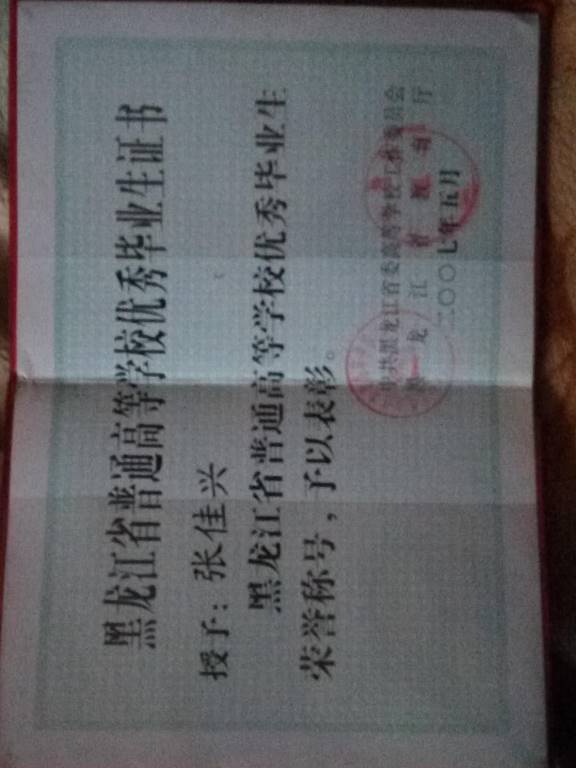 黑龙江省普通高等学校优秀毕业生证书
授予：张佳兴
黑龙江省普通高等学校优秀毕业生
荣誉称号，予以表彰。
中共黑龙江省委高等学校工作委员会
黑龙江省教育厅
二〇〇七年五月